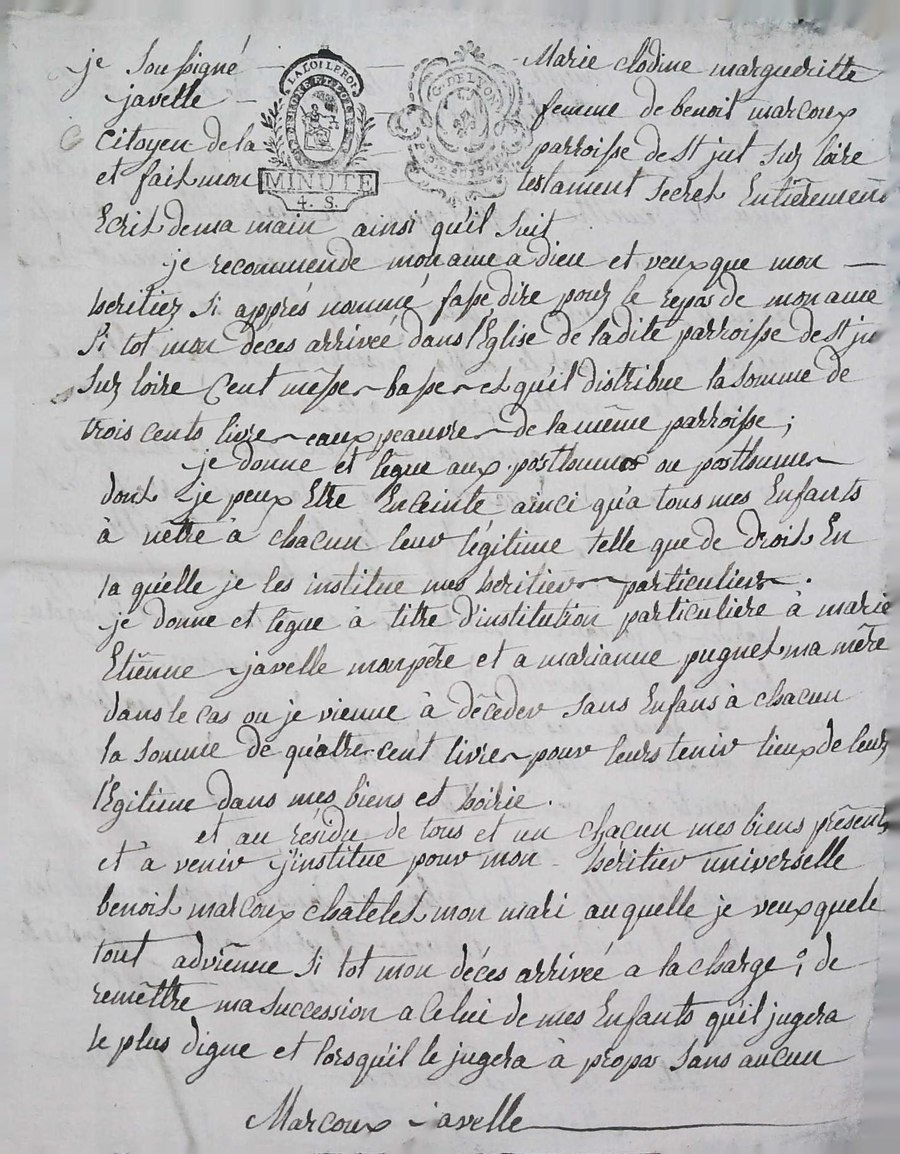 je soussigné Marie clodine margueritte
javelle femme de benoit marcoux
citoyen de la parroisse de st jut sur loire
et fait mon testament secret Entièrement
Ecrit de ma main ainsi qu'il suit
LA LOI LE ROI
G. DE LYON
MINUTE
4. S.
je recommende mon ame a dieu et veux que mon
heritier si apprés nommé fasse dire pour le repas de mon ame
si tot mon déces arrivéé dans l'Eglise de la dite parroisse de st ju
sur loire Cent mêsse basse et qu'il distribue la somme de
trois cents livre eaux peauvre de la même parroisse ;
je donne et lêgue aux posthumes ou posthume
dont je peux Etre Enceinte ainci qu'a tous mes Enfants
à nêtre à chacun leur légitime telle que de droit En
la qu'elle je les institue mes heritier particuliers .
je donne et lêgue à titre d'institution particulière à marie
Etiênne javelle mon père et a marianne pugnet ma mêre
dans le cas ou je vienne à dêceder sans Enfans à chacun
la somme de quattre cent livre pour leurs tenir lieux de leur
l'Egitime dans mes biens et hoirie .
et au résidu de tous et un chacun mes biens présents
et a venir j'institue pour mon heritier universelle
benoit marcoux chatelet mon mari au quelle je veux que le
tout adviênne si tot mon déces arrivéé a la charge ; de
remêttre ma succession a Celui de mes Enfants qu'il jugera
le plus digne et lorsqu'il le jugera à propos sans aucun
Marcoux javelle